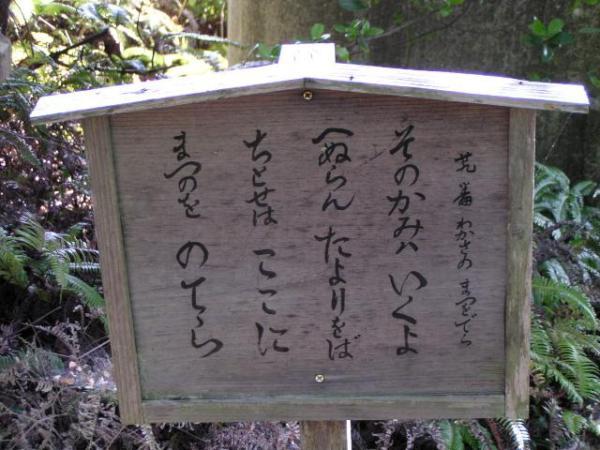 廿九番 わかさの まつをでら
そのかみハ いくよ
へぬらん たよりをば
ちとせは ここに
まつのを のてら